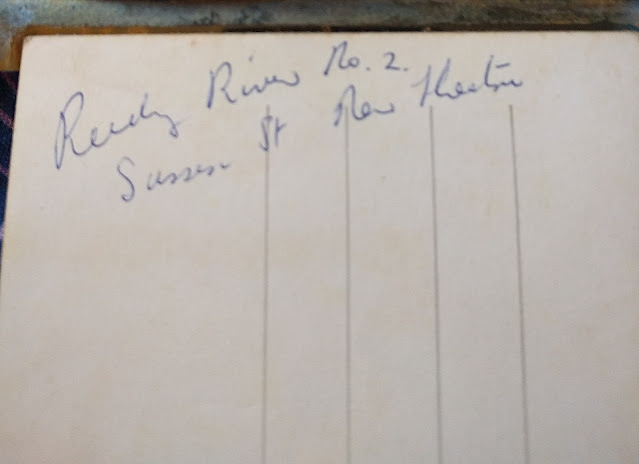 Reedy River No. 2.
Sussex St New Theatre